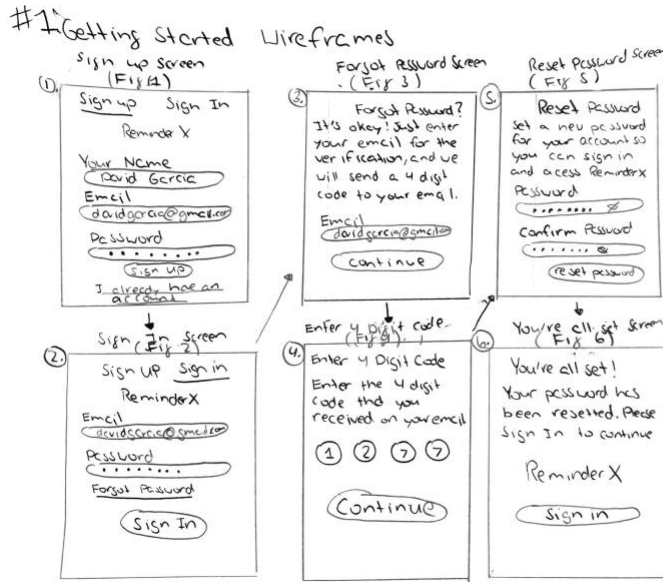 #1 Getting Started Wireframes
Sign up Screen
(Fig 1)
1.
Sign up Sign In
Reminder X
Your Name
David Garcia
Email
davidgarcia@gmail.com
Password
Sign up
I already have an
account
Sign In Screen
(Fig 2)
2.
Sign UP Sign in
ReminderX
Email
davidgarcia@gmail.com
Password
Forgot Password
Sign In
Forgot Password Screen
(Fig 3)
3.
Forgot Password?
It's okey! Just enter
your email for the
verification, and we
will send a 4 digit
code to your email.
Email
davidgarcia@gmail.com
Continue
Enter 4 Digit code
(Fig 4)
4.
Enter 4 Digit Code
Enter the 4 digit
code that you
received on your email
1 2 7 7
Continue
Reset Password Screen
(Fig 5)
5.
Reset Password
Set a new password
for your account so
you can sign in
and acess ReminderX
Password
Confirm Password
reset password
You're all set Screen
(Fig 6)
6.
You're all set!
Your password has
been resetted. Please
Sign In to continue
Reminder X
Sign in